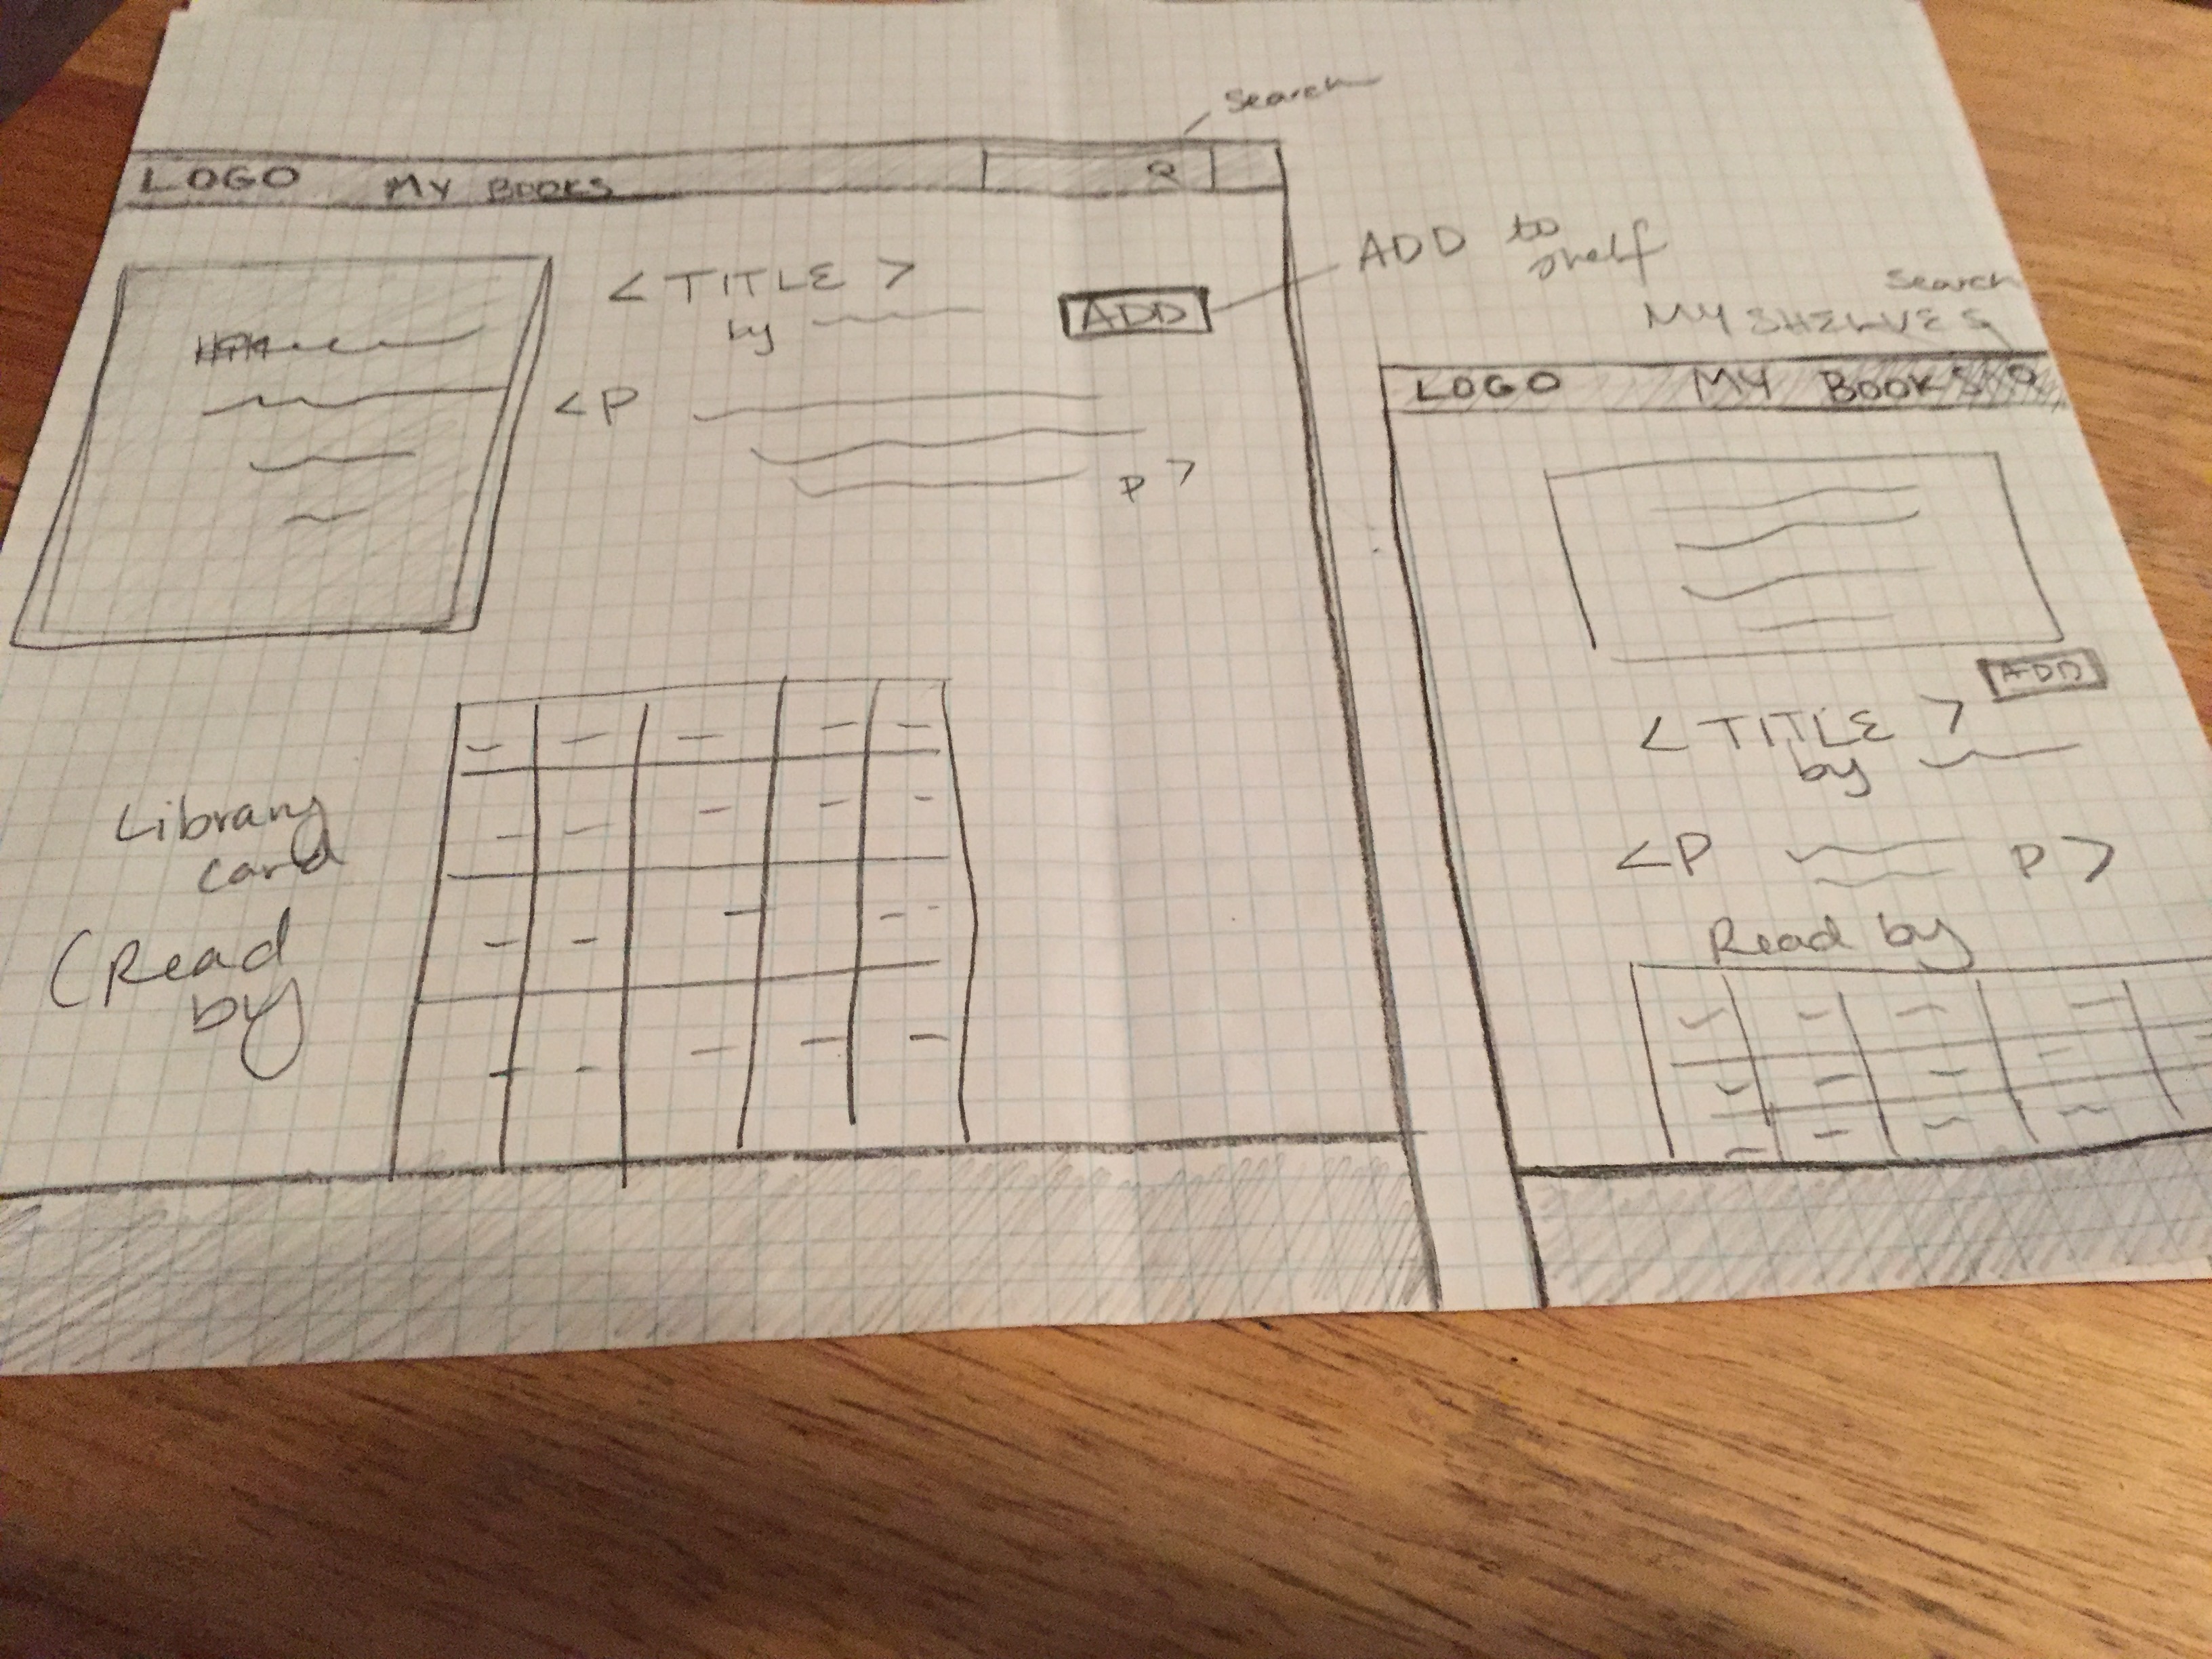 Search
LOGO MY BOOKS
ADD to
shelf
< TITLE >
by
ADD
<P
P>
Library
card
(Read
by
Search
MY SHELVES
LOGO MY BOOKS
ADD
< TITLE >
by
<P P>
Read by